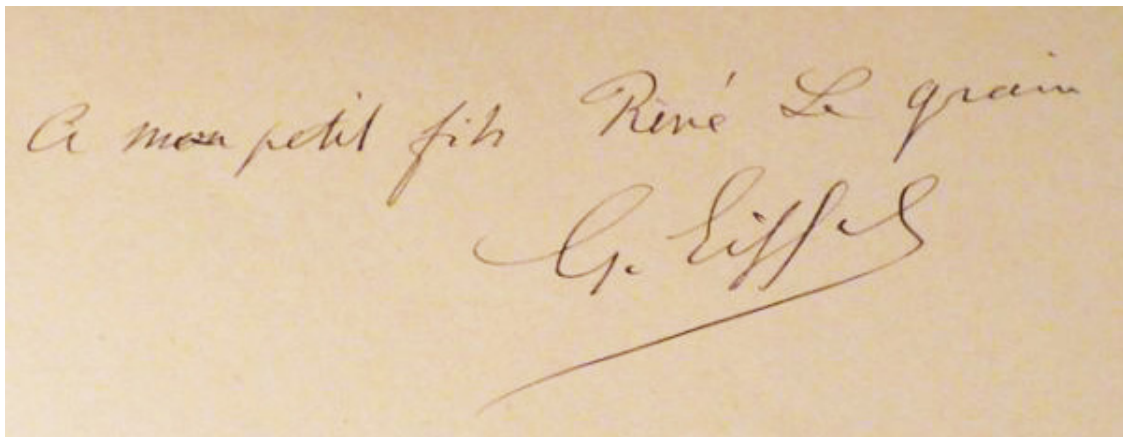 A mon petit fils René Le grain
G. Eiffel